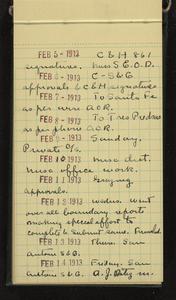 FEB 5 - 1913 C & H 861
signature. Miss S.E.O.D.
FEB 6 - 1913 C-S&G
approvals & C&H signatures
FEB 7 - 1913 To Santa Fe
as per wire A.O.R.
FEB 8 - 1913 To Tres Piedras
as per phone A.O.R.
FEB 9 - 1913 Sunday.
Private a/c.
FEB 10 1913 Misc dist.
Misc office work.
FEB 11 1913 Grazing
approvals.
FEB 12 1913 Wednes. Went
over all boundary reports
making special effort to
complete & submit same.
FEB 13 1913 Thurs. San
Antonio S&G.
FEB 14 1913 Friday. San
Antone S&G.